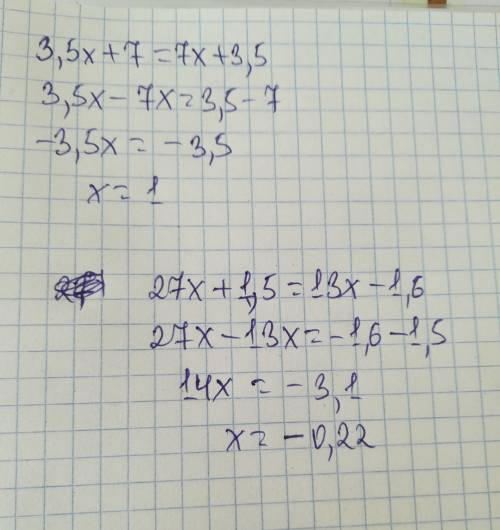 3,5x+7=7x+3,5
3,5x-7x=3,5-7
-3,5x=-3,5
x=1
27x+1,5=13x-1,6
27x-13x=-1,6-1,5
14x=-3,1
x=-0,22